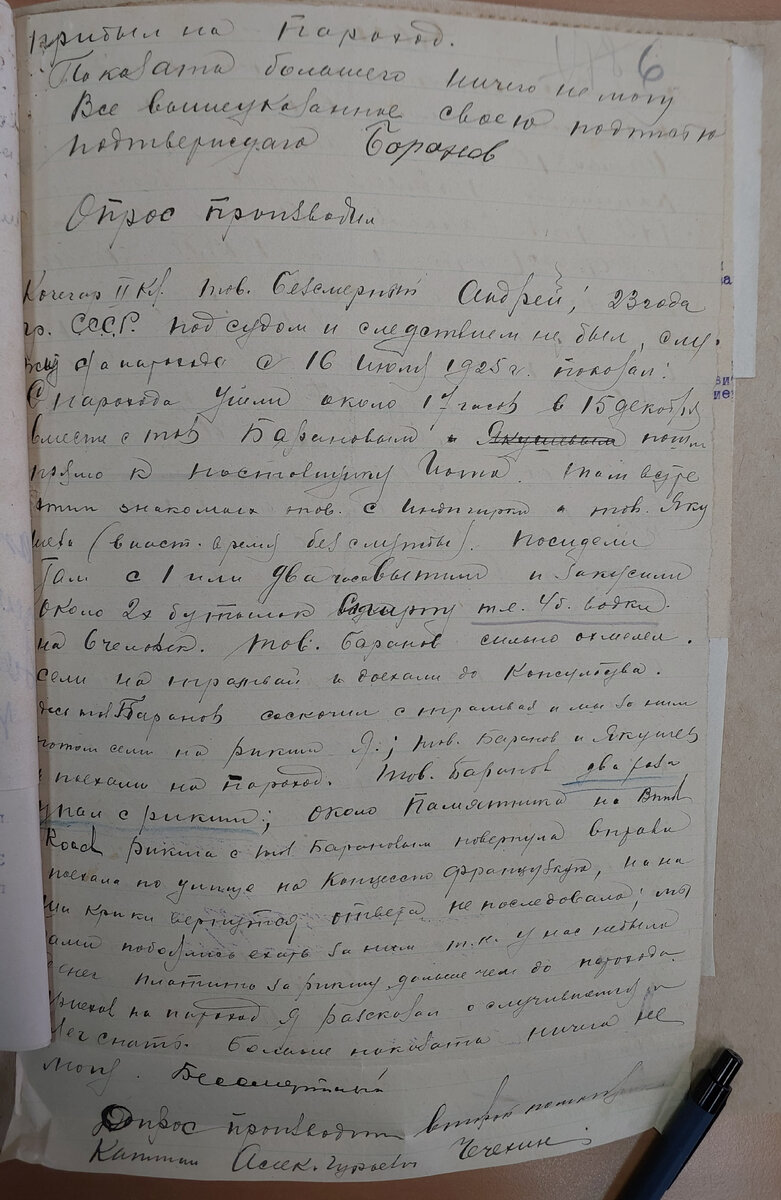 прибыл на пароход.
6
Показать большего ничего не могу
Все вышеуказанное свою подписью
подтверждаю Баранов
Опрос производил
Кочегар II кл. тов. Безсмертный Андрей, 23 года
гр. СССР. под судом и следствием не был, слу-
жу на пароходе с 16 июля 1925 г. показал:
С парохода ушли около 17 часов в 15 декабря
вместе с тов Барановым и Якушевым пошли
прямо к поставщику Там встре
тили знакомых тов. с Индигирки и тов. Яку
шева (в наст. время без службы). Посидели
там с 1 или два часа выпили и закусили
около 2х бутылок спирту т.е. 4 б. водки.
на 6 человек. тов. Баранов сильно охмелел.
сели на трамвай и доехали до Консульства.
здесь тов Баранов соскочил с трамвая и мы за ним
потом сели на рикши Я.; тов. Баранов и Якушев
и поехали на пароход. Тов. Баранов два раза
упал с рикши; около Памятника на
Road рикша с тов Барановым повернула вправо
поехала по улице на Концессию французскую, на на
ши крики вернуться ответа не последовало; мы
сами побоялись ехать за ним т.к. у нас небыло
денег платить за рикшу дольше чем до парохода.
Приехав на пароход я расказал о случившемся и
лег спать. Больше показать ничего не
могу. Бессмертный
Опрос производил второй помощник
Капитан Алек. Чечехин